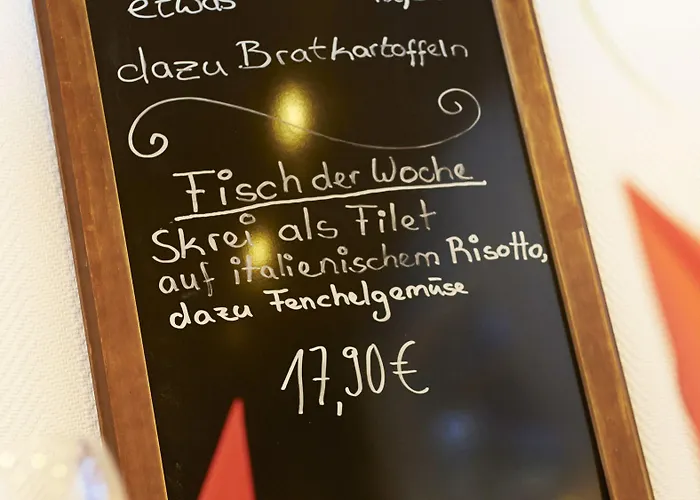 etwas
dazu Bratkartoffeln
Fisch der Woche
Skrei als Filet
auf italienischem Risotto,
dazu Fenchelgemüse
17,90€